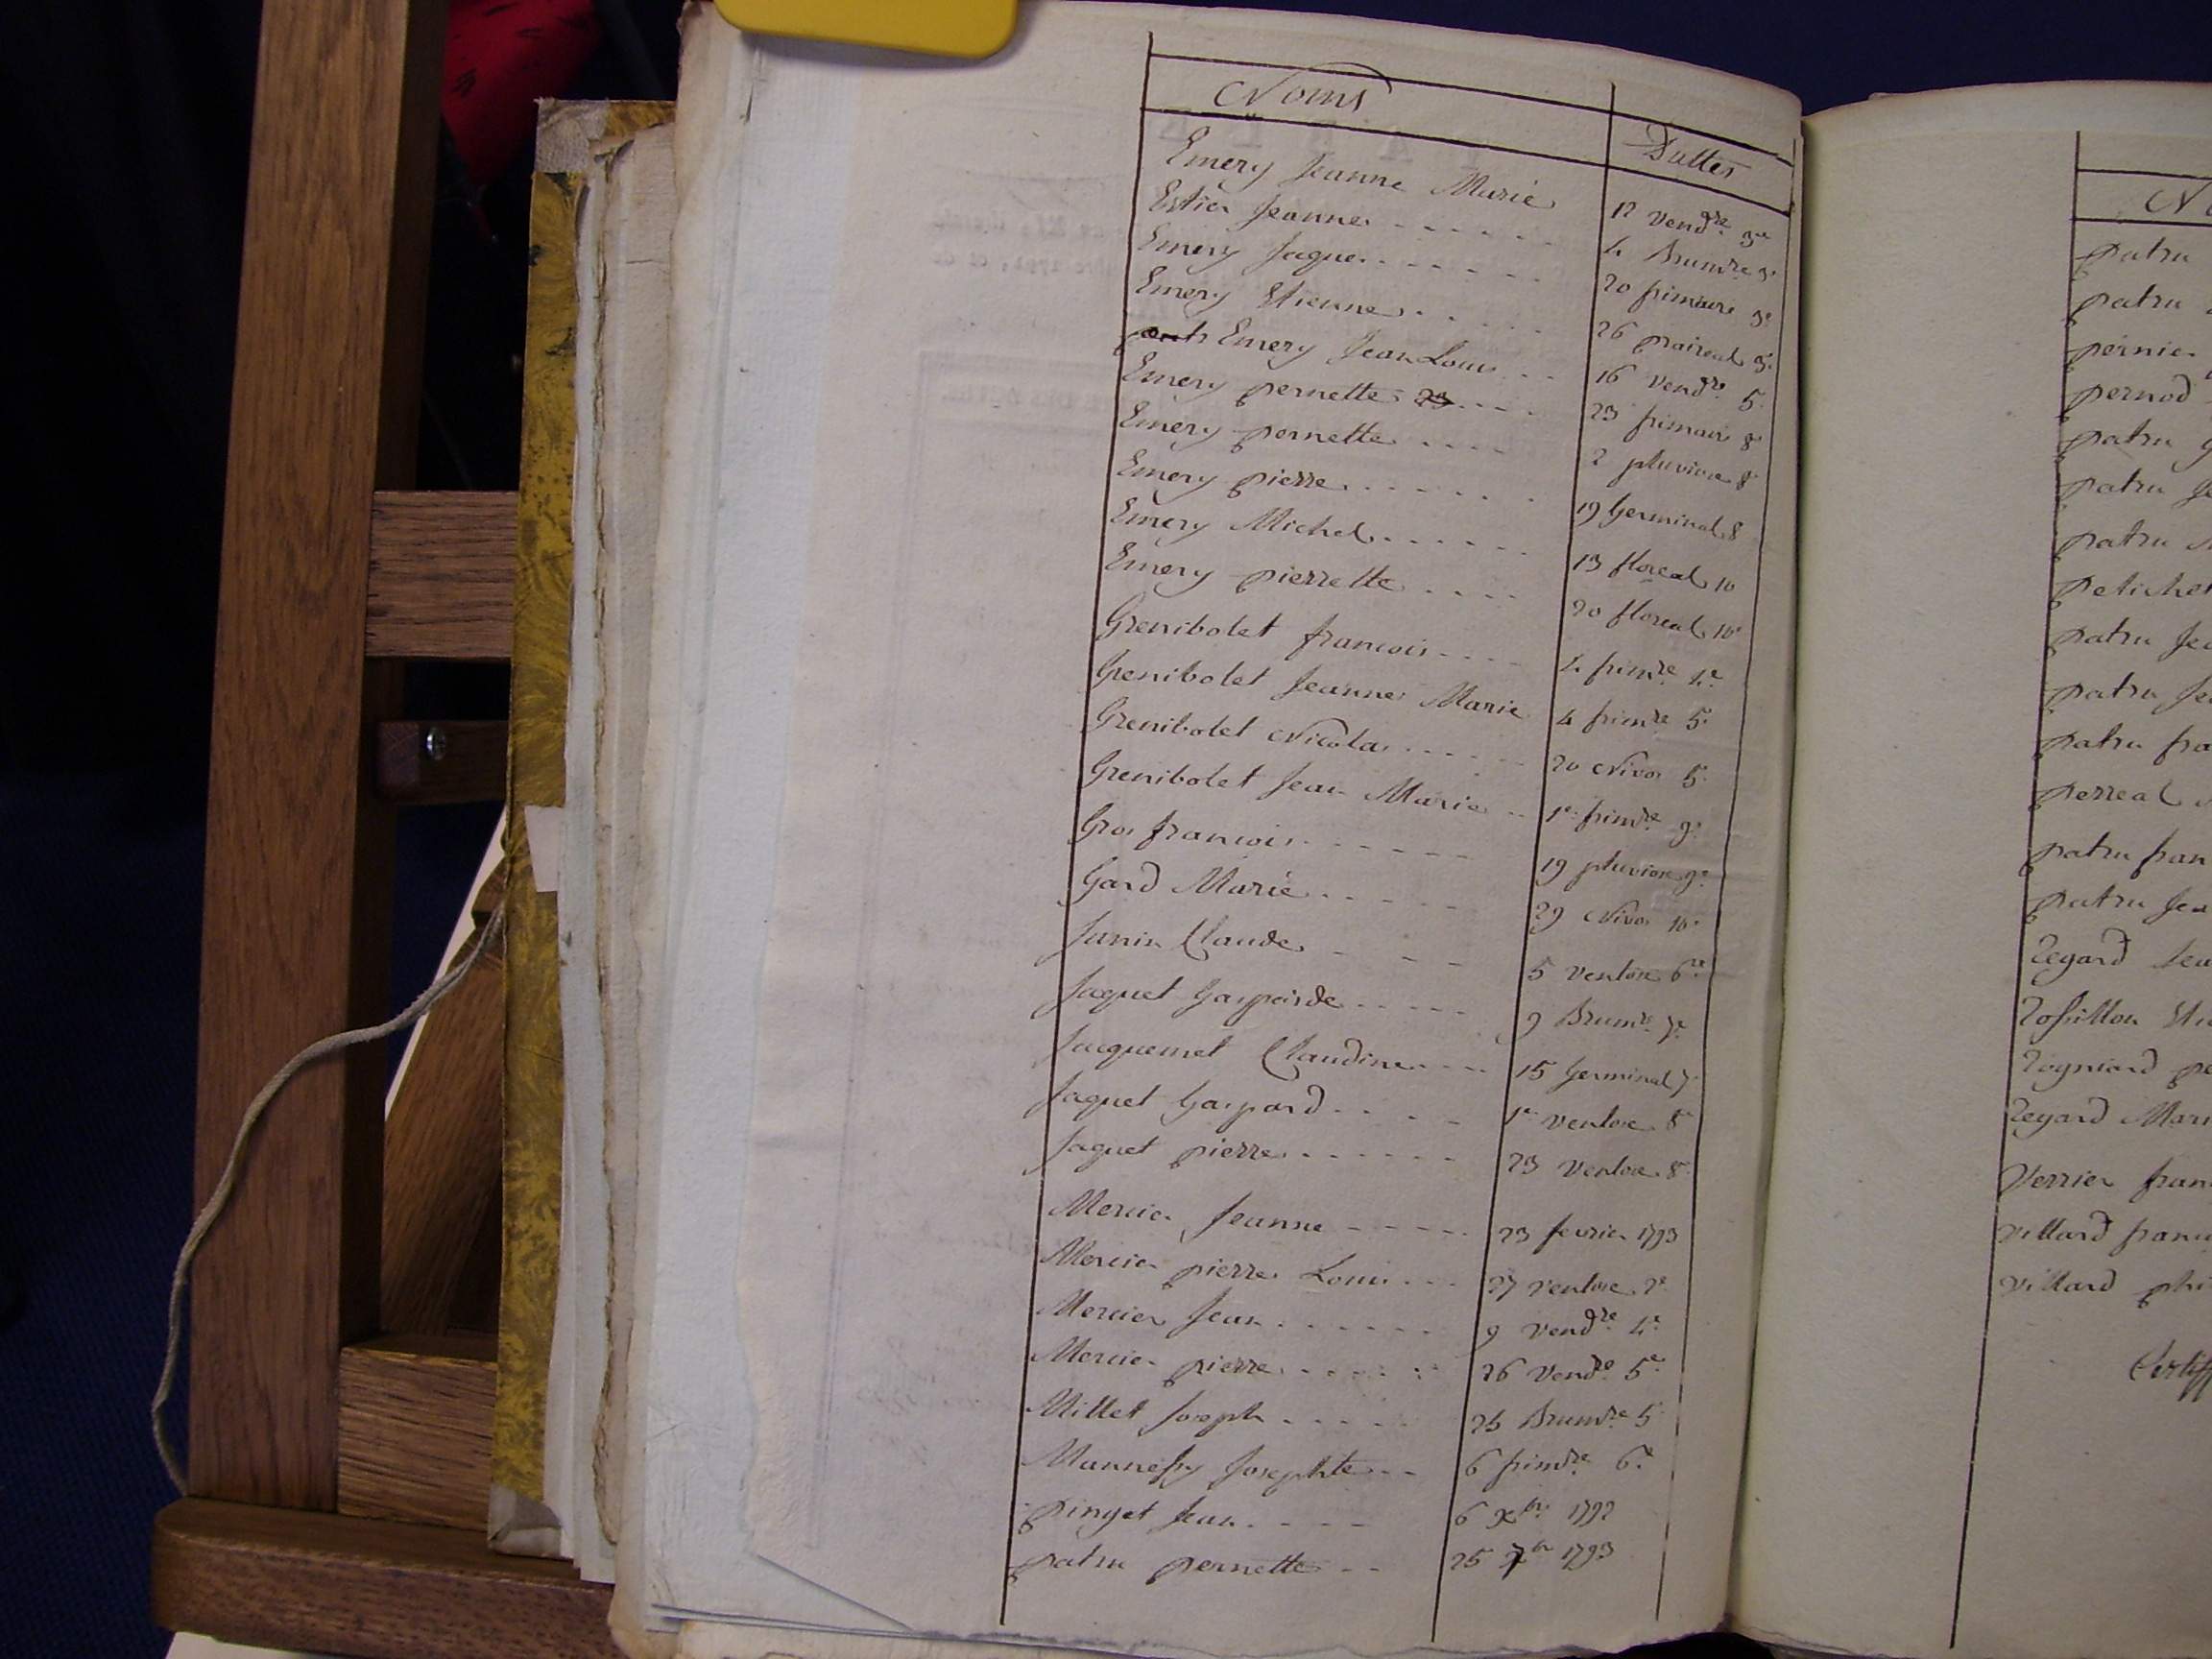 Noms Dattes
Emery Jeanne Marie 12 vend.re 3.e
Estier Jeanne 4 Brum.re 3.e
Emery Jaque 20 frimaire 3.e
Emery Etienne 26 praireal 3.e
Emery Jean Louis 16 vend.re 5.
Emery pernette 23 frimaire 8.e
Emery pernette 2 pluviose 8.e
Emery pierre 19 Germinal 8
Emery Michel 13 floreal 10
Emery pierrette 20 floreal 10.e
Grenibolet francois 4 frim.re 4.e
Grenibolet Jeanne Marie 4 frim.re 5.e
Grenibolet Nicolas 20 Nivos 5.
Grenibolet Jean Marie 1.er frim.re 9.e
Gros francois 19 pluviose 9.e
Gard Marie 29 Nivos 10.
Janin Claude 5 ventose 6.e
Jaquet Gasparde 9 Brum.re 7.e
Jacquemet Claudine 15 Germinal 7.
Jaquet Gaspard 1.er ventose 8
Jaquet pierre 23 ventose 8.
Mercier Jeanne 23 fevrier 1793
Mercier pierre Louis 27 ventose 2.e
Mercier Jean 9 vend.re 4.e
Mercier pierre 26 vend.re 5.e
Millet Joseph 25 Brum.re 5
Mannessy Josephte 6 frim.re 6.e
pinget Jean 6 x.bre 1792
patru pernette 25 7.bre 1793
patru
patru
pernier
pernod
patru
patru
patru
petichet
patru
patru
patru
perreal
patru fran
patru
Regard
Rossillon
Rogniard
Regard
Verrier
villard
villard